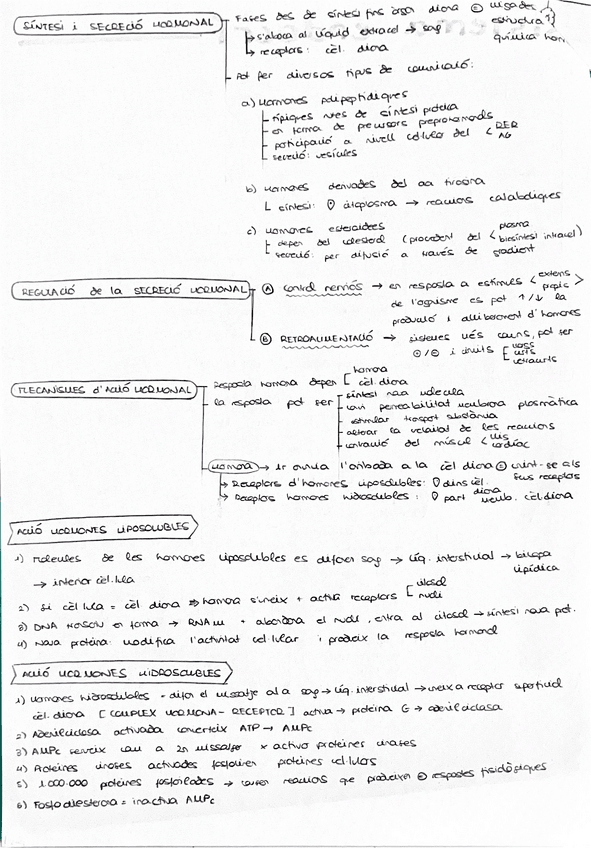 SÍNTESI i SECRECIÓ HORMONAL
Fases des de síntesi fins òrgan diana
s'aboca al líquid extracel → sang
receptors: cèl. diana
estructura
química horm.
Pot fer diversos tipus de comunicació:
a) Hormones polipeptídiques
típiques vies de síntesi proteica
en forma de precursors preprohormonals
participació a nivell cel·lular del < RER AG
secreció: vesícules
b) Hormones derivades del aa tirosina
síntesi: citoplasma → reaccions catabòliques
c) Hormones esteroidees
depen del colesterol (procedent del < plasma
biosíntesi intracel)
secreció: per difusió a través de gradient
REGULACIÓ de la SECRECIÓ HORMONAL
A Control nerviós → en resposta a estímuls < externs propis >
de l'organisme es pot ↑/↓ la
producció i alliberament d'hormones
B RETROALIMENTACIÓ → sistema més comú, pot ser
⊕/⊖ i circuits
MECANISMES d'ACCIÓ HORMONAL
Resposta hormona depen [ hormona
cèl. diana
la resposta pot ser
síntesi nova molècula
canvi permeabilitat membrana plasmàtica
estimular transport substància
alterar la velocitat de les reaccions
contracció del múscul < llis
cardíac
Hormona → anuncia l'arribada a la cèl diana unint-se als
seus receptors
Receptors d'hormones liposolubles: dins cèl.
Receptors hormones hidrosolubles: part memb. cèl diana
ACCIÓ HORMONES LIPOSOLUBLES
1) Molècules de les hormones liposolubles es difonen sang → líq. intersticial → bicapa lipídica
→ interior cèl·lula
2) Si cèl·lula = cèl diana ⇒ hormona s'uneix + activa receptors [ citosol
nucli
3) DNA transcriu en forma → RNAm + abandona el nucli, entra al citosol → síntesi nova prot.
4) Nova proteïna: modifica l'activitat cel·lular i produeix la resposta hormonal
ACCIÓ HORMONES HIDROSOLUBLES
1) Hormones hidrosolubles = difon el missatge a la sang → líq. intersticial → uneix a receptor superficial
cèl. diana [COMPLEX HORMONA-RECEPTOR] activa → proteïna G → adenilciclasa
2) Adenilciclasa activada converteix ATP → AMPc
3) AMPc serveix com a 2n missatger x activar proteïnes cinases
4) Proteïnes cinases activades fosforilen proteïnes cel·lulars
5) 1.000.000 proteïnes fosforilades → causen reaccions que produeixen respostes fisiològiques
6) Fosfodiesterasa = inactiva AMPc